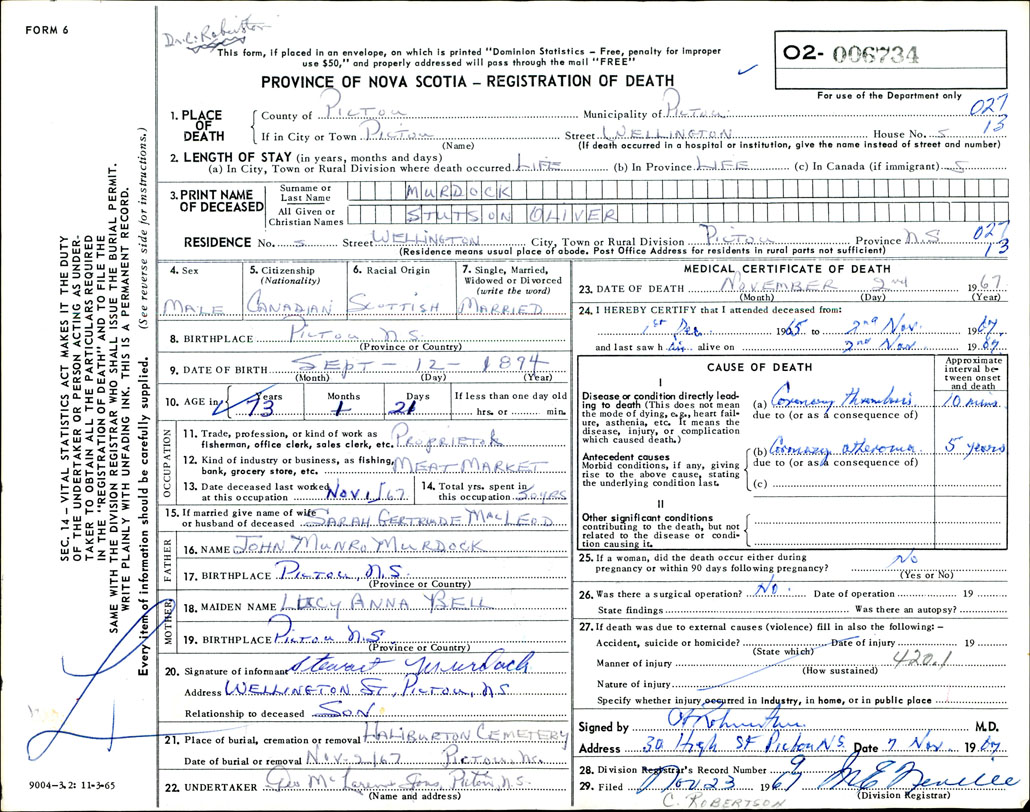 FORM 6
This form, if placed in an envelope, on which is printed "Dominion Statistics – Free, penalty for improper
use $50," and properly addressed will pass through the mail "FREE"
PROVINCE OF NOVA SCOTIA – REGISTRATION OF DEATH
O2- 006734
For use of the Department only
027
13
1. PLACE OF DEATH
County of PICTOU Municipality of PICTOU
If in City or Town PICTOU Street WELLINGTON House No. 5
(Name) (If death occurred in a hospital or institution, give the name instead of street and number)
2. LENGTH OF STAY (in years, months and days)
(a) In City, Town or Rural Division where death occurred LIFE (b) In Province LIFE (c) In Canada (if immigrant)
3. PRINT NAME OF DECEASED
Surname or Last Name MURDOCK
All Given or Christian Names STUTSON OLIVER
RESIDENCE No. 5 Street WELLINGTON City, Town or Rural Division PICTOU Province N.S
(Residence means usual place of abode. Post Office Address for residents in rural parts not sufficient)
027
13
4. Sex MALE
5. Citizenship (Nationality) CANADIAN
6. Racial Origin SCOTTISH
7. Single, Married, Widowed or Divorced (write the word) MARRIED
8. BIRTHPLACE PICTOU N.S.
(Province or Country)
9. DATE OF BIRTH SEPT - 12 - 1894
(Month) (Day) (Year)
10. AGE in Years 73 Months 1 Days 21 If less than one day old
hrs. or min.
OCCUPATION
11. Trade, profession, or kind of work as
fisherman, office clerk, sales clerk, etc. PROPRIETOR
12. Kind of industry or business, as fishing,
bank, grocery store, etc. MEAT MARKET
13. Date deceased last worked
at this occupation NOV. 1/67
14. Total yrs. spent in
this occupation 50 YRS
15. If married give name of wife
or husband of deceased SARAH GERTRUDE MACLEOD
FATHER
16. NAME JOHN MUNRO MURDOCK
17. BIRTHPLACE PICTOU, N.S.
(Province or Country)
MOTHER
18. MAIDEN NAME LUCY ANNA BELL
19. BIRTHPLACE PICTOU N.S.
(Province or Country)
20. Signature of informant Stewart Murdock
Address WELLINGTON ST, PICTOU, N.S
Relationship to deceased SON
21. Place of burial, cremation or removal HALIBURTON CEMETERY
Date of burial or removal NOV. 2/67 PICTOU, N.S.
22. UNDERTAKER Geo McLaren Sons, Pictou, N.S.
(Name and address)
MEDICAL CERTIFICATE OF DEATH
23. DATE OF DEATH NOVEMBER 2nd 1967
(Month) (Day) (Year)
24. I HEREBY CERTIFY that I attended deceased from:
1st Dec 1965 to 2nd Nov. 1967
and last saw him alive on 2nd Nov. 1967.
CAUSE OF DEATH
Approximate interval between onset and death
I
Disease or condition directly leading to death (This does not mean
the mode of dying, e.g., heart failure, asthenia, etc. It means the
disease, injury, or complication
which caused death.)
(a) Coronary thrombosis 10 mins.
due to (or as a consequence of)
Antecedent causes
Morbid conditions, if any, giving
rise to the above cause, stating
the underlying condition last.
(b) Coronary atheroma 5 years
due to (or as a consequence of)
(c)
II
Other significant conditions
contributing to the death, but not
related to the disease or condition causing it.
25. If a woman, did the death occur either during
pregnancy or within 90 days following pregnancy? No
(Yes or No)
26. Was there a surgical operation? No. Date of operation 19
State findings Was there an autopsy?
27. If death was due to external causes (violence) fill in also the following: –
Accident, suicide or homicide? Date of injury 19
(State which)
Manner of injury 420.1
(How sustained)
Nature of injury
Specify whether injury occurred in Industry, in home, or in public place
Signed by M.D.
Address 30 High St Pictou N.S. Date 7 Nov. 1967
28. Division Registrar's Record Number
29. Filed Nov. 23 1967 M E Neville
(Division Registrar)
C. ROBERTSON
SEC. 14 – VITAL STATISTICS ACT MAKES IT THE DUTY
OF THE UNDERTAKER OR PERSON ACTING AS UNDERTAKER TO OBTAIN ALL THE PARTICULARS REQUIRED
IN THE "REGISTRATION OF DEATH" AND TO FILE THE
SAME WITH THE DIVISION REGISTRAR WHO SHALL ISSUE THE BURIAL PERMIT.
WRITE PLAINLY WITH UNFADING INK. THIS IS A PERMANENT RECORD.
Every item of information should be carefully supplied. (See reverse side for instructions.)
9004-3.2: 11-3-65